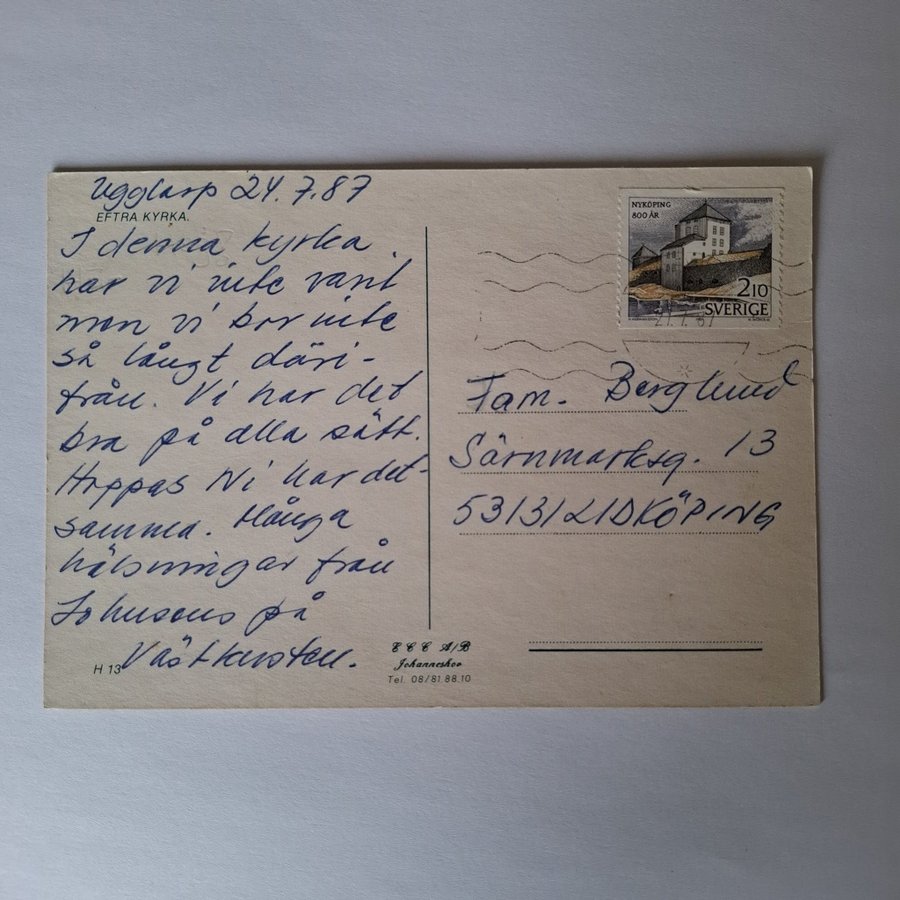 Ugglarp 24.7.87
EFTRA KYRKA.
I denna kyrka
har vi inte varit
men vi bor inte
så långt däri-
från. Vi har det
bra på alla sätt.
Hoppas Ni har det-
samma. Många
hälsningar från
Johnsons på
Västkusten.
H 13
E C C A/B
Johanneshov
Tel. 08/81 88.10
NYKÖPING
800 ÅR
2 10
SVERIGE
Fam. Berglund
Särnmarksg. 13
53131 LIDKÖPING